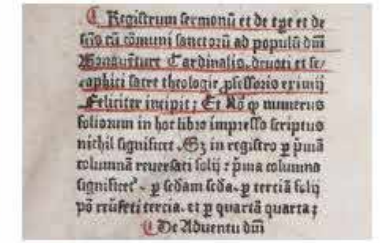 ⸿ Registrum sermonū et de tꝑe et de
scīs cū cōmuni sanctorū ad populū dn̄i
Bonauenture Cardinalis. deuoti et se-
raphici sacre theologie ꝓfessoris eximij
Feliciter incipit; Et Nō ꝙ numerus
foliorum in hoc libro impresso scriptus
nichil significet. Sꝫ in registro ꝑ pͥmā
columnā reuersati folij; pͥma columna
significeť. ꝑ sc̄dam sc̄da. ꝑ terciā folij
pō reūseti tercia. et ꝑ quartā quarta;
⸿ De Aduentu dn̄i